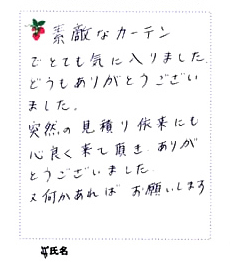 素敵なカーテン
でとても気に入りました。
どうもありがとうござい
ました。
突然の見積り依来にも
心良く来て頂き、ありが
とうございました
又何かあれば お願いします
氏名